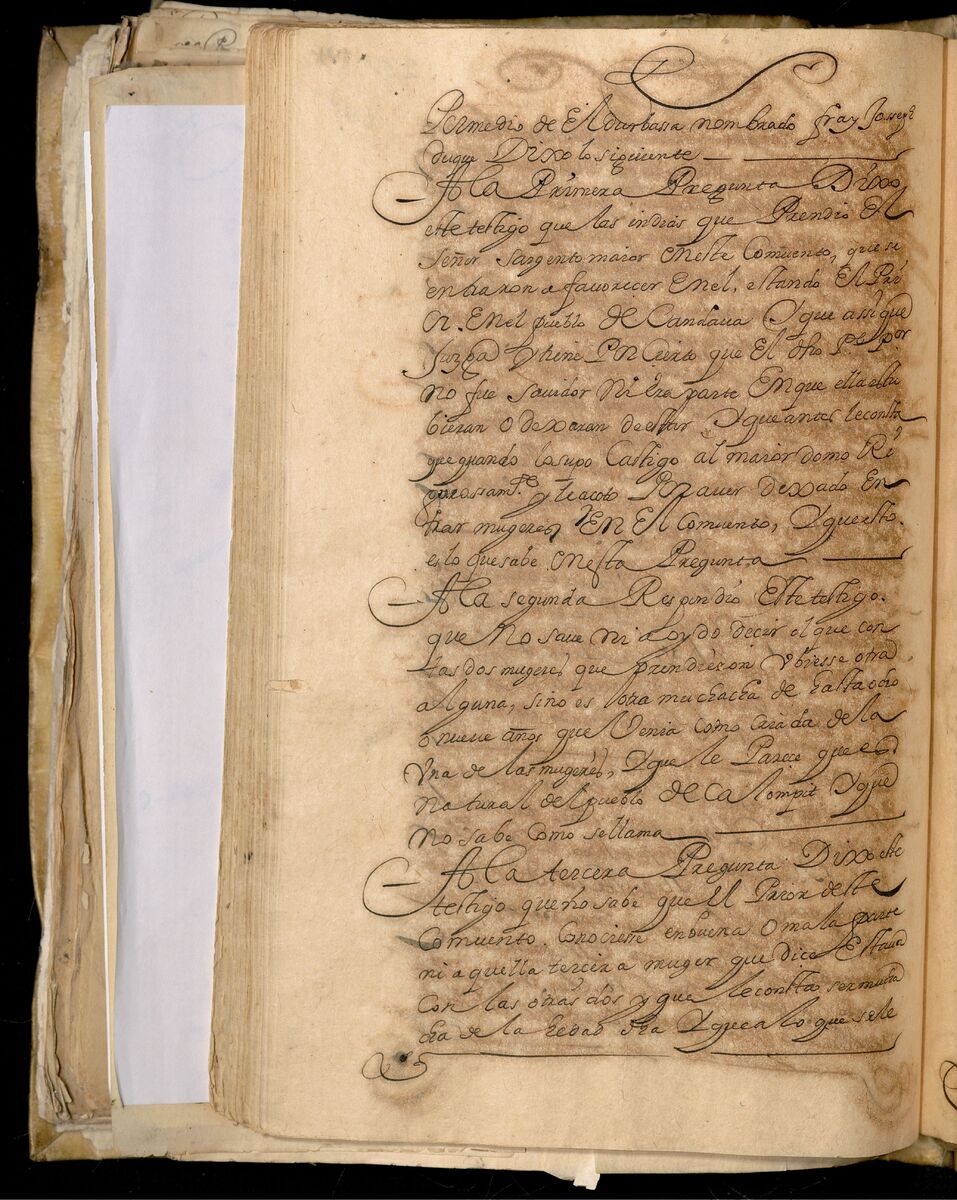 Permedio de El durbassa nombrado fray Joseph
duque Dixo lo siguiente
A la Primera Pregunta Dixo,
este testigo que las indias que Prendio El
señor Sargento maior Eneste Comuento, que se
entraron a fauorecer Enel, estando El Pri
or. Enel pueblo de Candaua Y que assi que
Juzga Y tiene Por Cierto que El dho Pe. Por
no fue sauidor Ni tra parte En que ella estu
bieran O dexaran de estar Y que antes leconsta
que quando lo supo Castigo al maior domo Ri
gurossamte. y le acoto Por auer Dexado En
trar mugeres EN El Comuento, Y que esto.
es lo que sabe Enesta Pregunta
A la segunda Respondio Este testigo.
que No saue Ni a oydo decir el que con
las dos mugeres que prendieron Vbiesse otra
alguna, sino es otra muchacha de hasta ocho
o nueue años que Venia como criada de la
vna de las mugeres, Y que le Parece que es
Natural del pueblo de Calompit Y que
No sabe Como se llama
A la tercera Pregunta Dixo este
testigo que no sabe que El Prior deste
Comuento. Conociesse en buena O mala parte
ni a quella tercera muger que dice Estaua
Con las otras dos y que leconsta ser mucha
cha de la hedad dha Y que a lo que se le